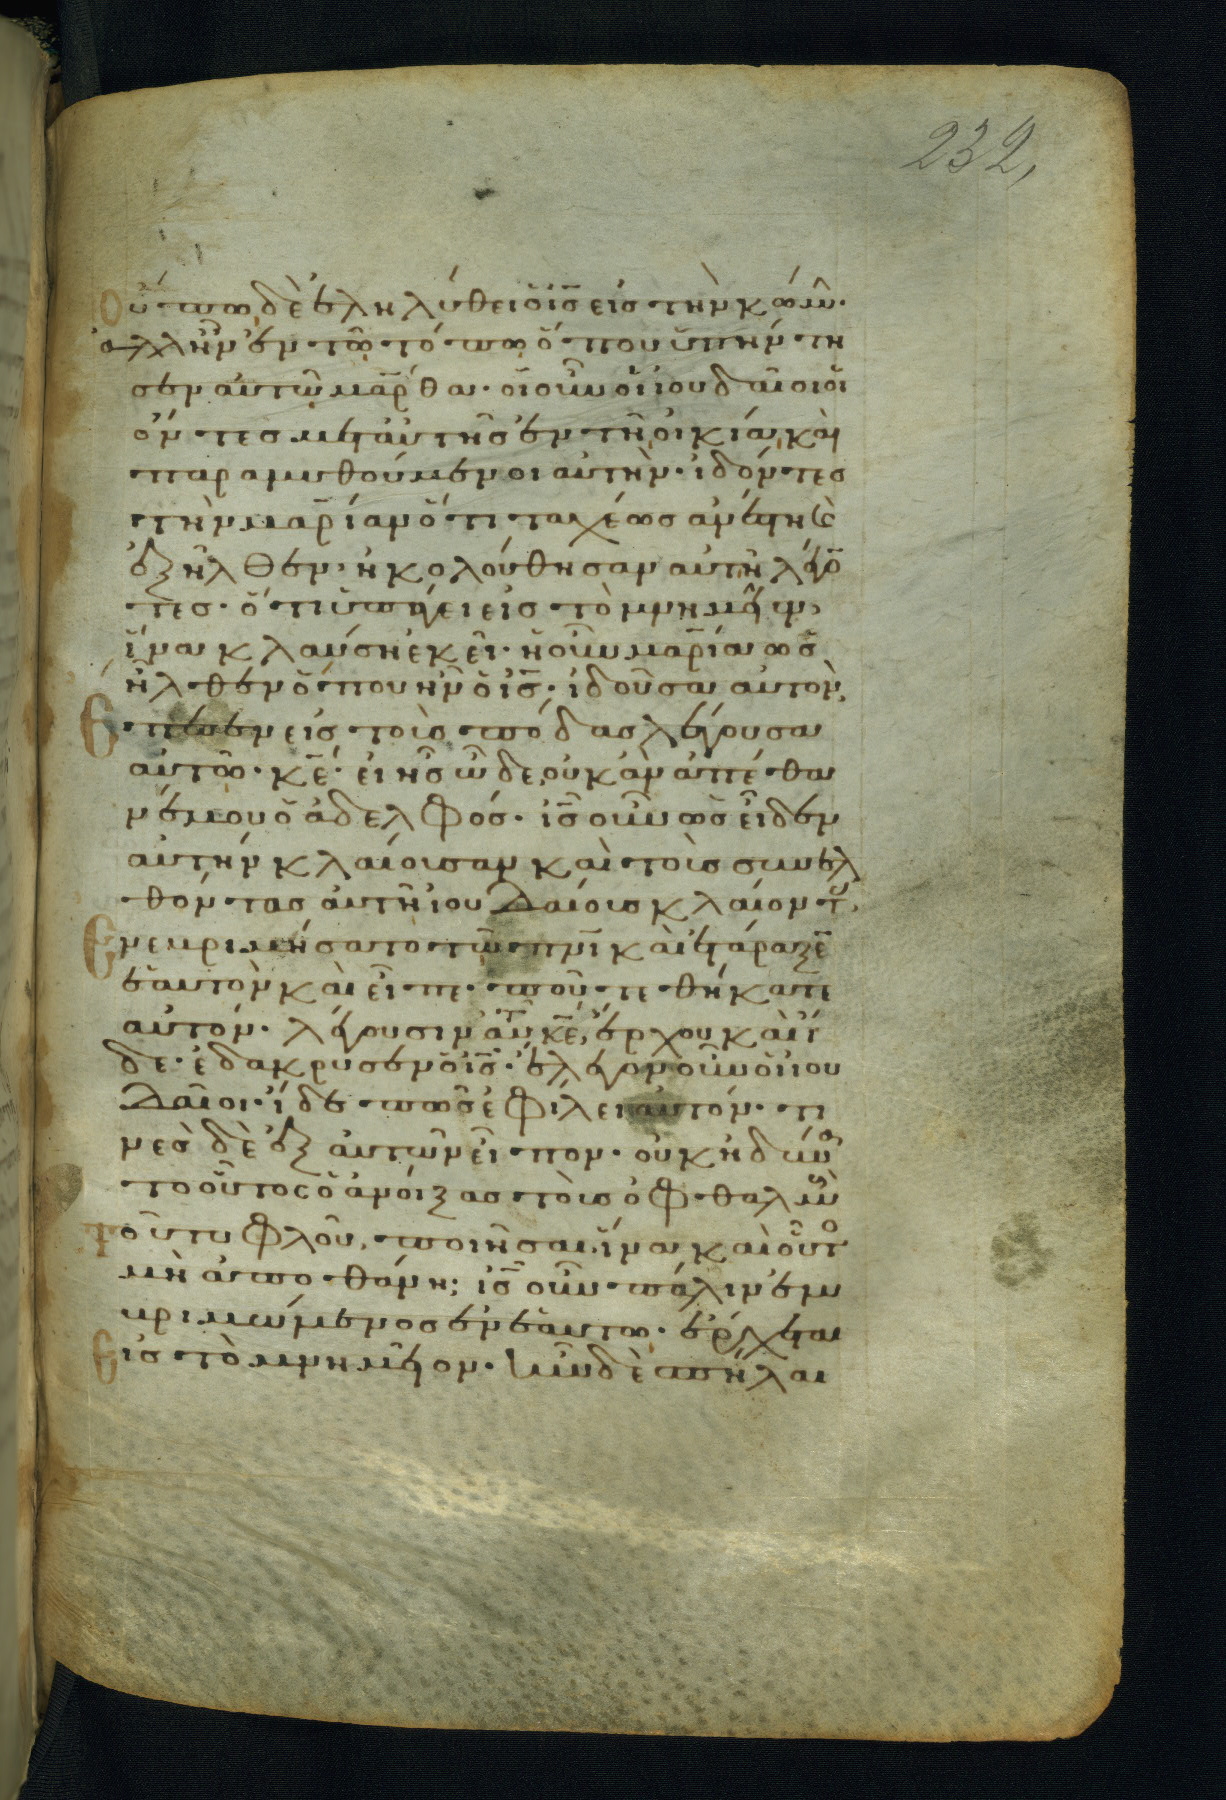 232,
Οὔπω δὲ ἐληλύθει ὁ ις εἰς τὴν κώμην·
ἀλλ ἦν ἐν τῶ τόπω ὅπου ὑπήντη
σεν αὐτῶ μάρθα· οἱ οὖν ἰουδαῖοι οἱ
ὄντες μετ αὐτῆς ἐν τῆ οἰκία, καὶ
παραμυθούμενοι αὐτὴν· ἰδόντες
τὴν μαρίαν ὅτι ταχέως ἀνέστη καὶ
ἐξῆλθεν· ἠκολούθησαν αὐτῆ λέγον
τες· ὅτι ὑπάγει εἰς τὸ μνημεῖον,
ἵνα κλαύση ἐκεῖ· ἡ οὖν μαρία ὡς
ἦλθεν ὅπου ἦν ὁ ις· ἰδοῦσα αὐτὸν,
Ἔπεσεν εἰς τοὺς πόδας λέγουσα
αὐτῶ· κε· εἰ ἦς ὧδε, οὐκ ἂν ἀπέθα
νέ μου ὁ ἀδελφός· ις οὖν ὡς εἶδεν
αὐτὴν κλαίουσαν καὶ τοὺς συνελ
θόντας αὐτῆ ἰουδαίους κλαίοντας,
Ἐνεβριμήσατο τῶ πνι καὶ ἐτάραξεν
ἑαυτὸν καὶ εἶπε· ποῦ τεθήκατε
αὐτόν· λέγουσιν αὐτῶ κε, ἔρχου καὶ ἴ
δε· ἐδάκρυσεν ὁ ις· ἔλεγον οὖν οἱ ἰου
δαῖοι· ἴδε πῶς ἐφίλει αὐτόν· τι
νὲς δὲ ἐξ αὐτῶν εἶπον· οὐκ ἠδύνα
το οὗτος ὁ ἀνοίξας τοὺς ὀφθαλμοὺς
Τοῦ τυφλοῦ, ποιῆσαι, ἵνα καὶ οὗτος
μὴ ἀποθάνη; ις οὖν πάλιν ἐμ
βριμώμενος ἐν ἑαυτῶ· ἔρχεται
Εἰς τὸ μνημεῖον· ἦν δὲ σπήλαι